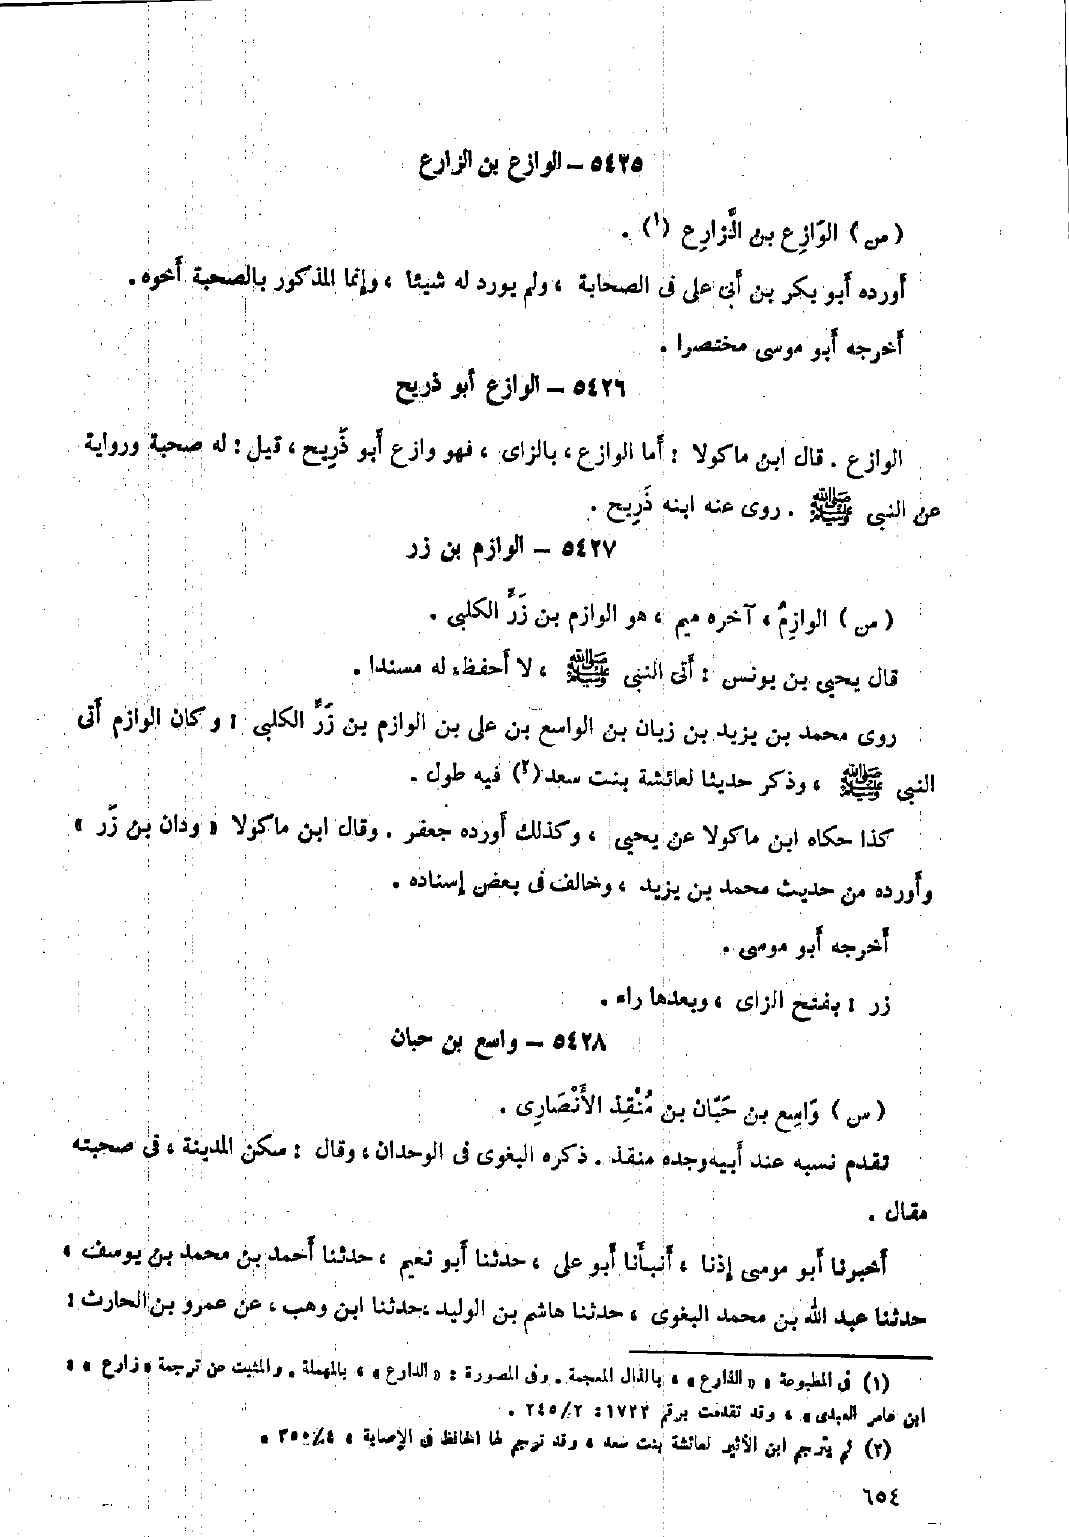 ٥٤٢٥ – الوازع بن الزارع
( س ) الوَازِع بن الزَّارِع (١) .
أورده أبو بكر بن أبى على فى الصحابة ، ولم يورد له شيئا ، وإنما المذكور بالصحبة أخوه .
أخرجه أبو موسى مختصرا .
٥٤٢٦ – الوازع أبو ذريح
الوازع . قال ابن ماكولا : أما الوازع ، بالزاى ، فهو وازع أبو ذَرِيح ، قيل : له صحبة ورواية
عن النبى ﷺ . روى عنه ابنه ذَرِيح .
٥٤٢٧ – الوازم بن زر
( س ) الوازِمُ ، آخره ميم ، هو الوازم بن زَرٍّ الكلبى .
قال يحيى بن يونس : أتى النبى ﷺ ، لا أحفظ له مسندا .
روى محمد بن يزيد بن زبان بن الواسع بن على بن الوازم بن زَرٍّ الكلبى : وكان الوازم أتى
النبى ﷺ ، وذكر حديثا لعائشة بنت سعد(٢) فيه طول .
كذا حكاه ابن ماكولا عن يحيى ، وكذلك أورده جعفر . وقال ابن ماكولا « ودان بن زَر »
وأورده من حديث محمد بن يزيد ، وخالف فى بعض إسناده .
أخرجه أبو موسى .
زر : بفتح الزاى ، وبعدها راء .
٥٤٢٨ – واسع بن حبان
( س ) وَاسِع بن حَبَّان بن مُنْقِذ الأَنْصَارِى .
تقدم نسبه عند أبيه وجده منقذ . ذكره البغوى فى الوحدان ، وقال : سكن المدينة ، فى صحبته
مقال .
أخبرنا أبو موسى إذنا ، أنبأنا أبو على ، حدثنا أبو نعيم ، حدثنا أحمد بن محمد بن يوسف ،
حدثنا عبد الله بن محمد البغوى ، حدثنا هاشم بن الوليد ، حدثنا ابن وهب ، عن عمرو بن الحارث :
(١) فى المطبوعة : « الذارع » ، بالذال المعجمة . وفى المصورة : « الدارع » ، بالمهملة . والمثبت عن ترجمة « زارع » :
ابن عامر العبدى» ، وقد تقدمت برقم ١٧٢٣ : ٢/٢٤٥ .
(٢) لم يترجم ابن الأثير لعائشة بنت سعد ، وقد ترجم لها الحافظ فى الإصابة ، ٤/٣٥٠ .
٦٥٤